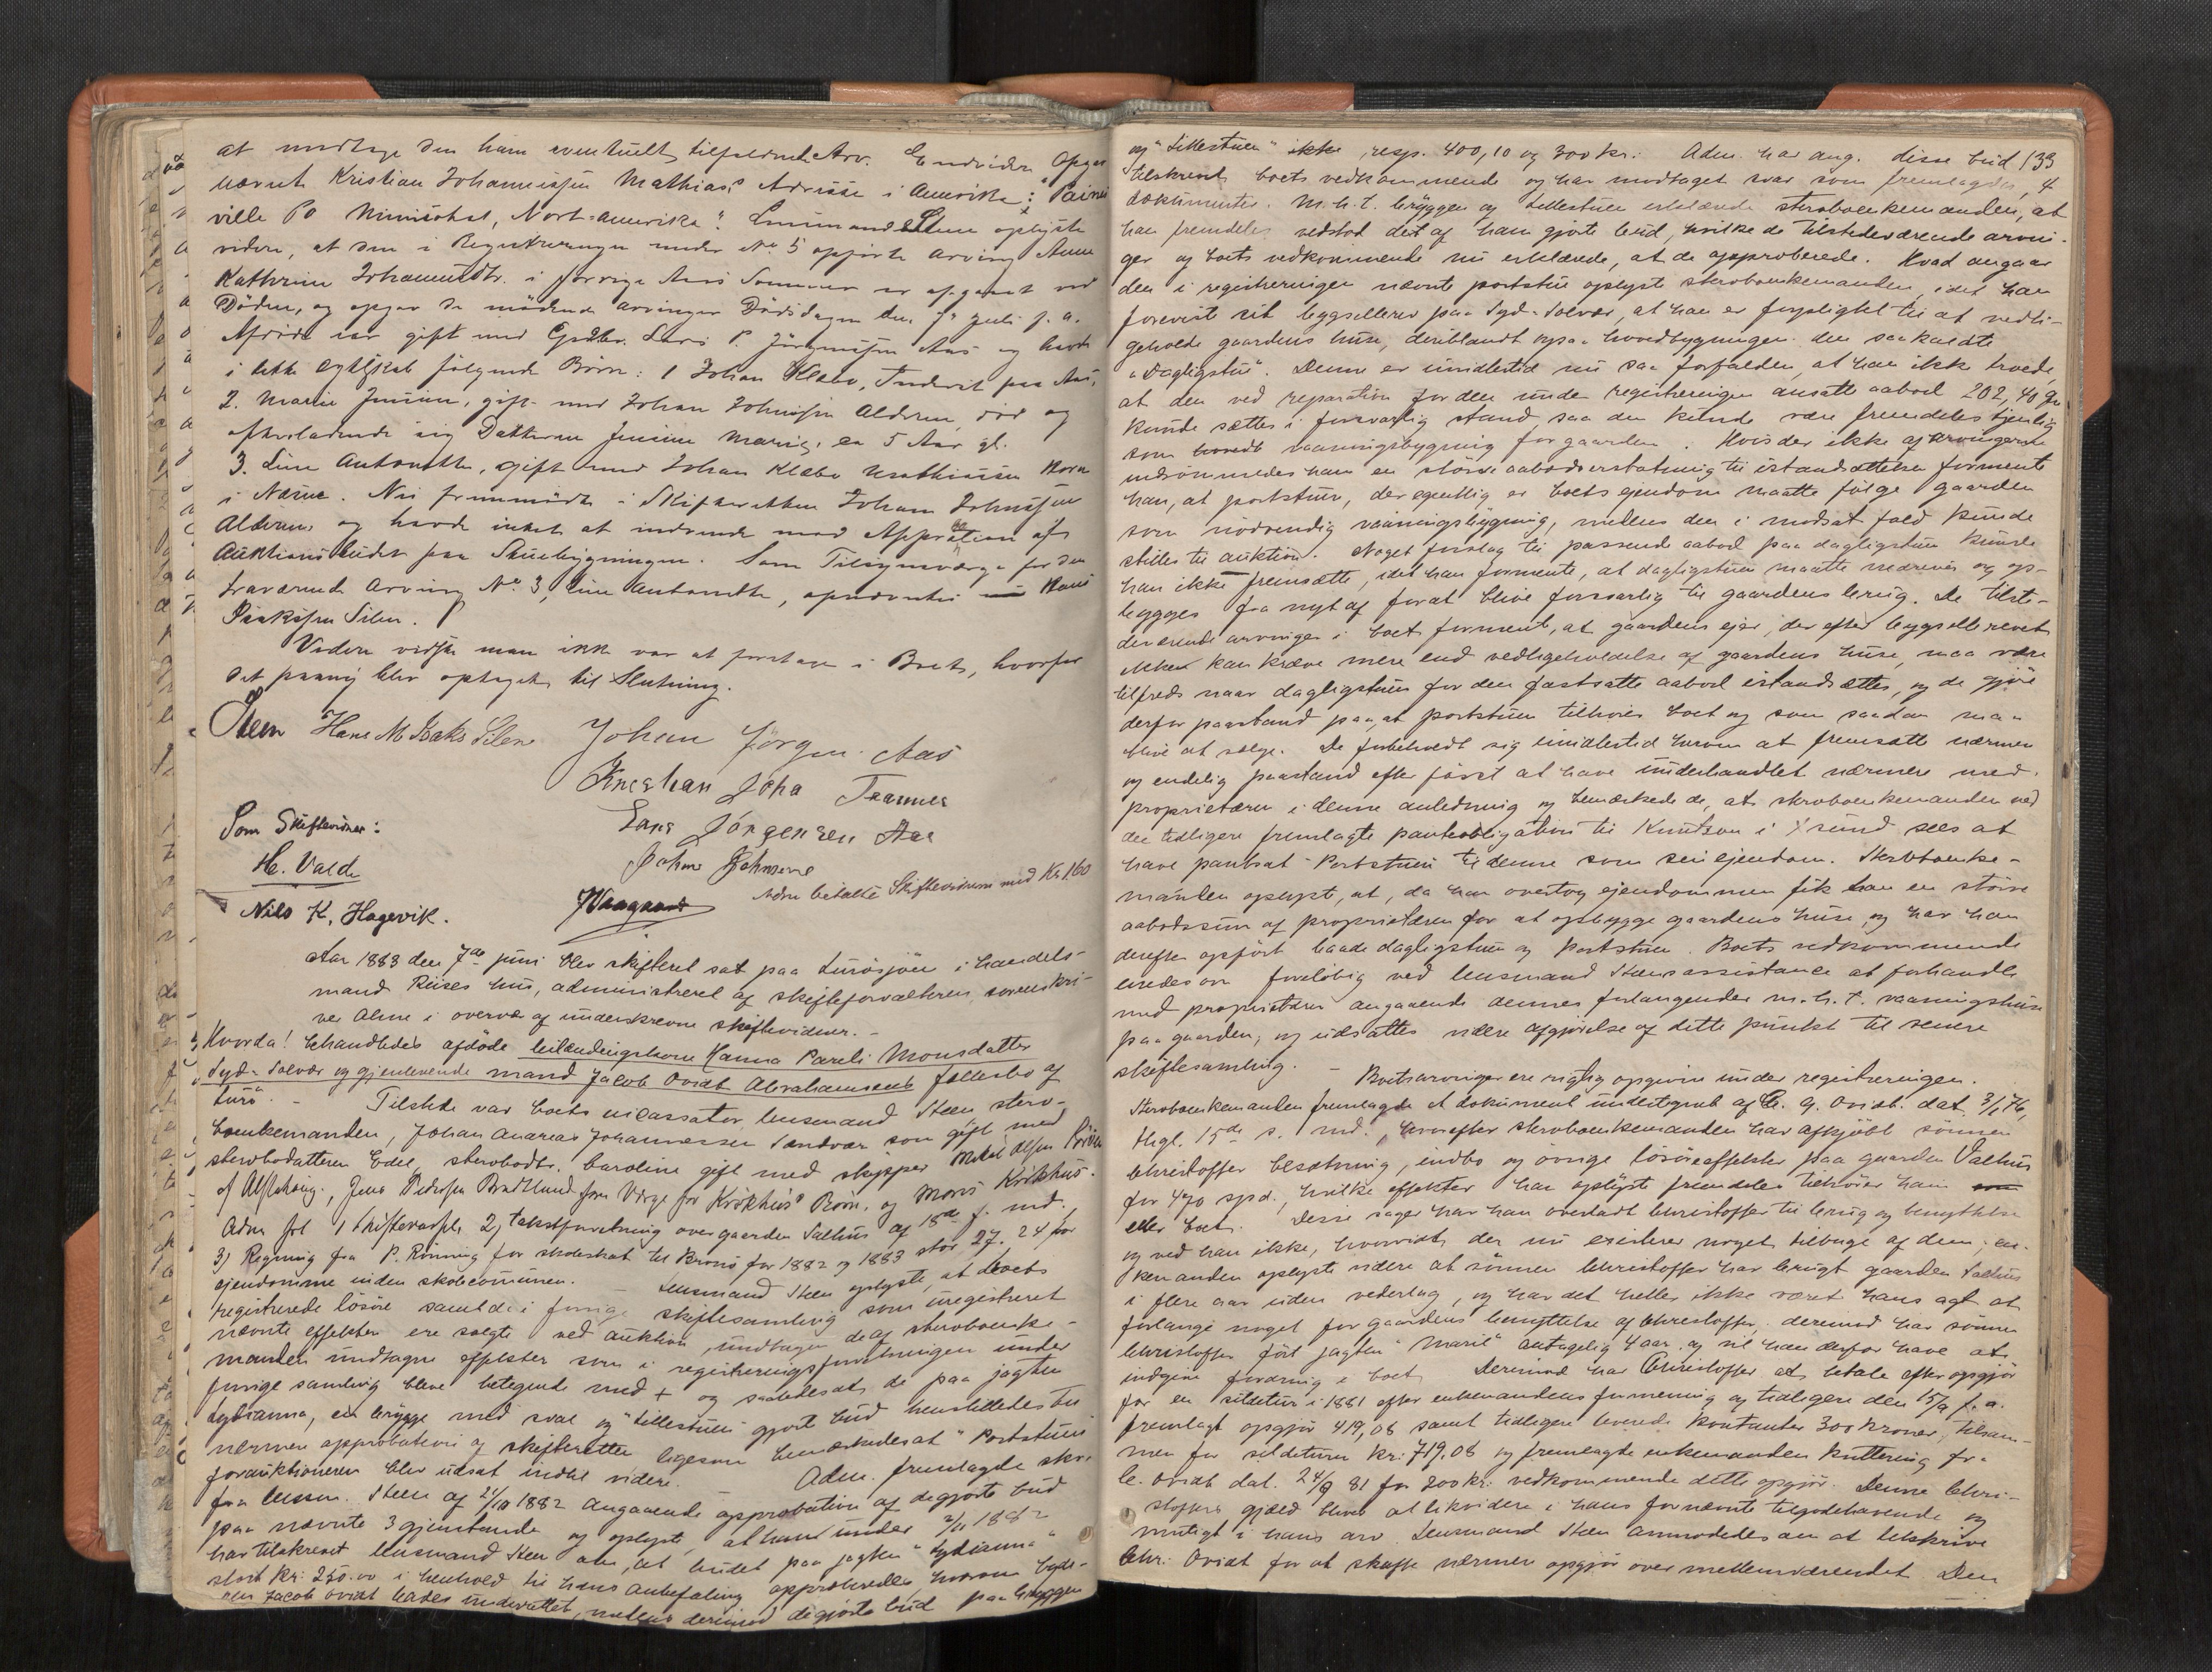 at modtage den ham eventuelt tilfaldende Arv. Endvidere opgav
nævnte Kristian Johannessen Mathias' Adresse i Amerika:
ville Po Minisohat, Nort-Amerika". Lensmand Steen oplyste
videre, at den i Registreringen under No 5 opførte Arving Anne
Kathrine Johannesdtr. i forrige Aars Sommer er afgaaet ved
Døden, og opgav de mødende Arvinger Dødsdagen den juli f. a.
Afdøde var gift med Gaardbr. Lars P. Jörgensen Aas og havde
i dette Ægteskab følgende Børn: 1 Johan Klæbo, paa Aas,
2. Marie Jensine, gift med Johan Johnsen Alderen, død og
efterladende sig Datteren Jensine Marie, ca 5 Aar gl.
3. Line Antonette, gift med Johan Klæbo Mathiassen
i Næsne. Nu fremmødte i Skifteretten Johan Johnsen
Alderen og havde intet at indvende mod Approbation af
Auktionsbudet paa Stuebygningen. Som Tilsynsværge for den
fraværende Arving No 3, Line Antonette, opnævntes Hans
Isaksen Silen.
Videre vidste man ikke var at foretage i Boet, hvorfor
det paany blev optaget til Slutning.
Steen Hans M Isaks Silen Johan Jørgen. Aas
Kristian Joha Teamnes
Lars Jörgensen Aas
Som Skiftevidner:
Johan Johnsen
H. Valde
Adm betalte Skiftevidnerne med Kr 1.60
Nils K. Hagevik.
Aar 1883 den 7de juni blev skifteret sat paa Lurösjöen i handels-
mand Reises hus, administreret af skifteforvalteren, sorenskri-
ver Alme i overvær af underskrevne skiftevidner. -
Hvorda! behandledes afdøde leilændingskone Hanna Pareli Monsdatter
Syd-Solvær og gjenlevende mand Jacob Ovidt Abrahamsens fællesbo af
Lurö. - Tilstede var boets incassator, lensmand Steen sterv-
boenkemanden, Johan Andreas Johannessen Sandvær som gift med
stervbodatteren Edel, stervbodtr. Caroline gift med skipper Mikal Olsen
af Alstahaug, Jens Pedersen Bratland som Værge for Krökhus' Börn, og Mons Krökhus.
Adm frl 1) skiftevarsler 2) takstforretning over gaarden Valhus af 18de f. md.,
3) Regning fra P. Rönning for skoleskat til Brönö for 1882 og 1883 stor 27. 24 for
ejendomme inden skolecommunen. Lensmand Steen oplyste, at boets
registrerede lösöre samt de i forrige skiftesamling som uregistreret
nævnte effekter ere solgte ved auktion, undtagen de af stervboenke-
manden undtagne effekter som i registreringsforretningen under
forrige samling bleve betegnede med + og saaledes at de paa jagten
Lydianna, en brygge med sval og "Lillestuen" gjorte bud henstilledes til
nærmere approbation af skifteretten ligesom bemærkedes at "Portstuen"
forauktioneren blev udsat indtil videre. Adm. fremlagde skr.
fra lensm. Steen af 21/10 1882 angaaende approbation af de gjorte bud
paa nævnte 3 gjenstande og oplyste, at han under 2/11 1882
har tilskrevet lensmand Steen om, at budet paa jagten "Lydianna"
stort kr: 250.00 i henhold til hans anbefaling approberedes, hvorom
Jacob Ovidt bades underrettet, medens derimod de gjorte bud paa bryggen
og "Lillestuen" ikke resp. 400,10 og 300 kr: Adm. har ang. disse bud 133
tilskrevet boets vedkommende og har modtaget svar som fremlagdes, 4
dokumenter. M.h.t. bryggen og Lillestuen erklærede stervboenkemanden, at
han fremdeles vedstod det af ham gjorte bud, hvilke de tilstedeværende arvin-
ger og boets vedkommende nu erklærede, at de approberede. Hvad angaar
den i registreringen nævnte portstue oplyste stervboenkemanden, idet han
foreviste sit bygselbrev paa Syd-Solvær, at han er forpligtet til at vedli-
geholde gaardens huse, deriblandt ogsaa hovedbygningen den saakaldte
"Dagligstue". Denne er imidlertid nu saa forfalden, at han ikke troede
at den ved reparation for den under registreringen ansatte aabod 202, 40
kunde sættes i forsvarlig stand, saa den kunde være fremdeles tjenlig
som vaaningsbygning for gaarden. Hvis der ikke af Arvingerne
indrömmedes ham en större aabodserstatning til istandsættelse formente
han, at portstuen, der egentlig er boets ejendom maatte følge gaarden
som nødvendig vaaningsbygning, medens den i modsat fald kunde
stilles til auktion. Noget forslag til passende aabod paa dagligstuen kunde
han ikke fremsætte, idet han formente, at dagligstuen maatte nedrives og op-
bygges fra nyt af forat blive forsvarlig til gaardens brug. De tilste-
deværende arvinger i boet formente, at gaardens ejer, der efter bygselbrevet
ikke kan kræve mere end vedligeholdelse af gaardens huse, maa være
tilfreds naar dagligstuen for den fastsatte aabod istandsættes, og de gjøre
derfor paastand paa, at portstuen tilhører boet og som saadan maa
blive at sælge. De forbeholdt sig imidlertid herom at fremsætte nærmere
og endelig paastand efter først at have underhandlet nærmere med
proprietæren i denne anledning og bemærkede de, at stervboenkemanden ved
den tidligere fremlagte panteobligation til Knutson i sees at
have pantsat Portstuen til denne som sin ejendom. Stervboenke-
manden oplyste, at, da han overtog ejendommen fik han en større
aabodssum af proprietæren for at opbygge gaardens huse, og har han
derefter opført baade dagligstuen og Portstuen. Boets vedkommende
enedes om foreløbig ved lensmand Steens assistance at forhandle
med proprietæren angaaende dennes forlangender m.h.t. vaaningshuse
paa gaarden, og udsattes videre afgjørelse af dette punkt til senere
skiftesamling. - Boets arvinger ere rigtig opgivne under registreringen.
Stervboenkemanden fremlagde et dokument undertegnet af C. A. Ovidt. dat. 3/1 76,
thgl. 15de s. md., hvorefter stervboenkemanden har afkjøbt sønnen
Christoffer besætning, indbo og øvrige løsøreeffekter paa gaarden Valhus
for 470 spd., hvilke effekter han oplyste fremdeles tilhører ham
eller boet. Disse sager har han overladt Christoffer til brug og benyttelse
og ved han ikke, hvorvidt der nu existerer noget tilbage af dem; en-
kemanden oplyste videre at sønnen Christoffer har brugt gaarden Valhus
i flere aar uden vederlag, og har det heller ikke været hans agt at
forlange noget for gaardens benyttelse af Christoffer; derimod har sønnen
Christoffer ført jagten "Maril" antagelig 4 aar og vil han derfor have at
indgive fordring i boet. Derimod har Christoffer at betale efter opgjør
for en sildetur i 1881 efter enkemandens formening og tidligere den 15/9 f. a.
fremlagt opgjør 419,08 samt tidligere leverede kontanter 300 kroner, tilsam-
men for sildeturen kr: 719,08 og fremlagde enkemanden kvittering fra
C. Ovidt dat. 24/9 81 for 300 kr. vedkommende dette opgjør. Denne Chri-
stoffers gjæld bliver at likvidere i hans fornævnte tilgodehavende og
muligt i hans arv. Lensmand Steen anmodedes om at tilskrive
Chr. Ovidt for at skaffe nærmere opgjør over mellemværendet. Den